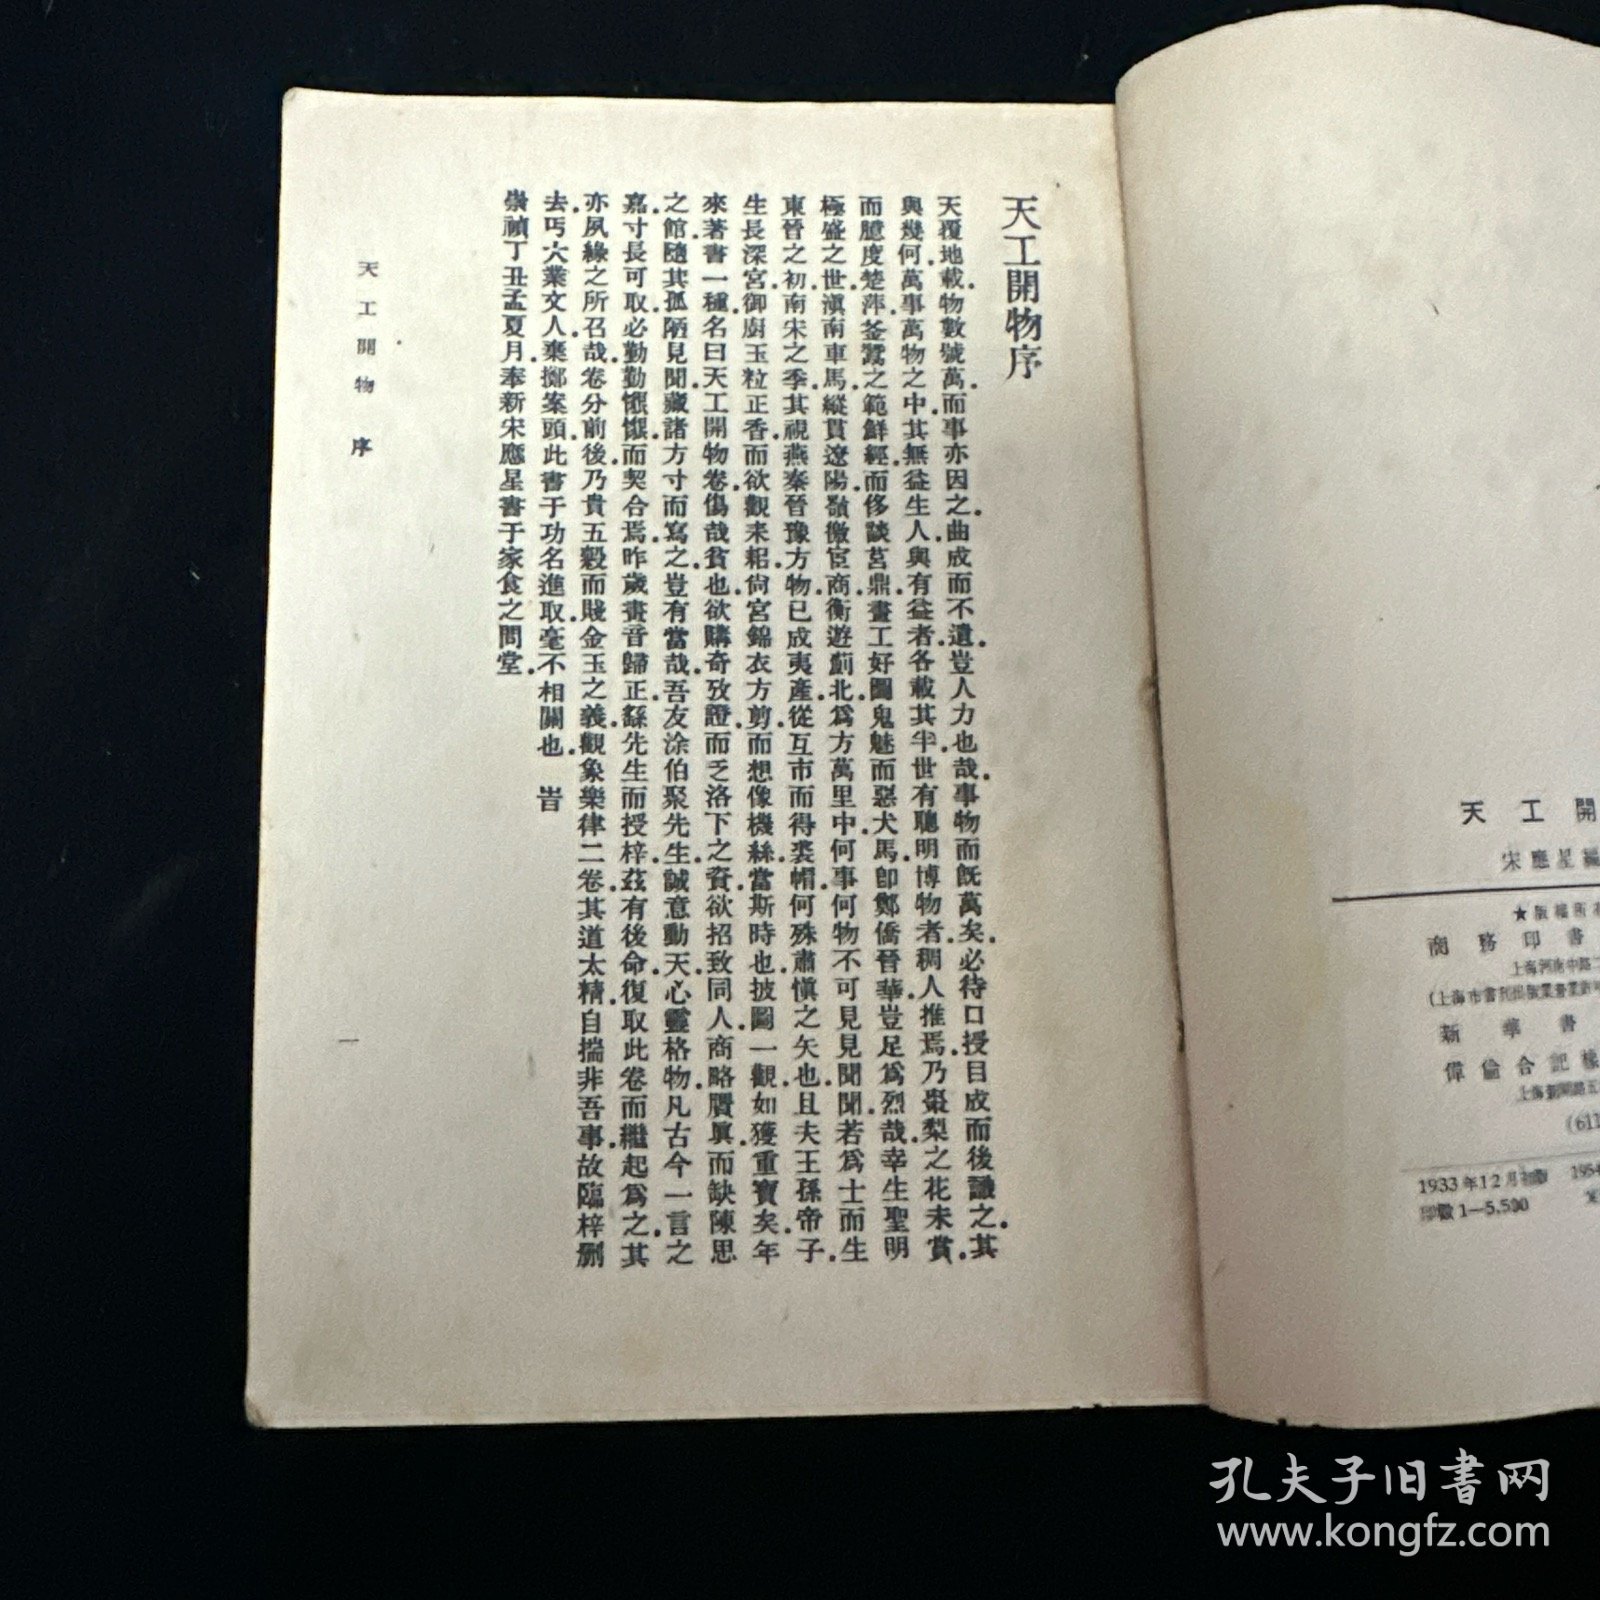 天工開物序
天覆地載.物數號萬.而事亦因之.曲成而不遺.豈人力也哉.事物而既萬矣.必待口授目成而後識之.其
與幾何.萬事萬物之中.其無益生人.與有益者.各載其半.世有聰明博物者.稠人推焉.乃棗梨之花未賞.
而臆度楚萍.釜鬵之範鮮經.而侈談莒鼎.畫工好圖鬼魅而惡犬馬.卽鄭僑晉華豈足爲烈哉.幸生聖明
極盛之世.滇南車馬.縱貫遼陽.嶺徼宦商.衡遊薊北.爲方萬里中.何事何物不可見見聞聞.若爲士而生
東晉之初.南宋之季.其視燕秦晉豫方物.已成夷產.從互市而得裘帽.何殊肅愼之矢也.且夫王孫帝子.
生長深宮.御廚玉粒正香.而欲觀耒耜.尙宮錦衣方剪.而想像機絲.當斯時也.披圖一觀.如獲重寶矣.年
來著書一種.名曰天工開物卷.傷哉貧也.欲購奇攷證.而乏洛下之資.欲招致同人.商略贋眞.而缺陳思
之館.隨其孤陋見聞.藏諸方寸而寫之.豈有當哉.吾友涂伯聚先生.誠意動天.心靈格物.凡古今一言之
嘉.寸長可取.必勤勤懇懇.而契合焉.昨歲畫音歸正.繇先生而授梓.茲有後命.復取此卷而繼起爲之.其
亦夙緣之所召哉.卷分前後.乃貴五穀而賤金玉之義.觀象樂律二卷.其道太精.自揣非吾事.故臨梓刪
去.丐大業文人.棄擲案頭.此書于功名進取.毫不相關也.旹
崇禎丁丑孟夏月.奉新宋應星書于家食之問堂.
天工開物 序
一
天工開
宋應星編
★版權所
商務印書
上海河南中路二
(上海市書刊出版業營業許
新華書
偉倫合記
上海新閘路五
(611
1933年12月初版 1954
印數1—5,500
孔夫子旧书网
www.kongfz.com